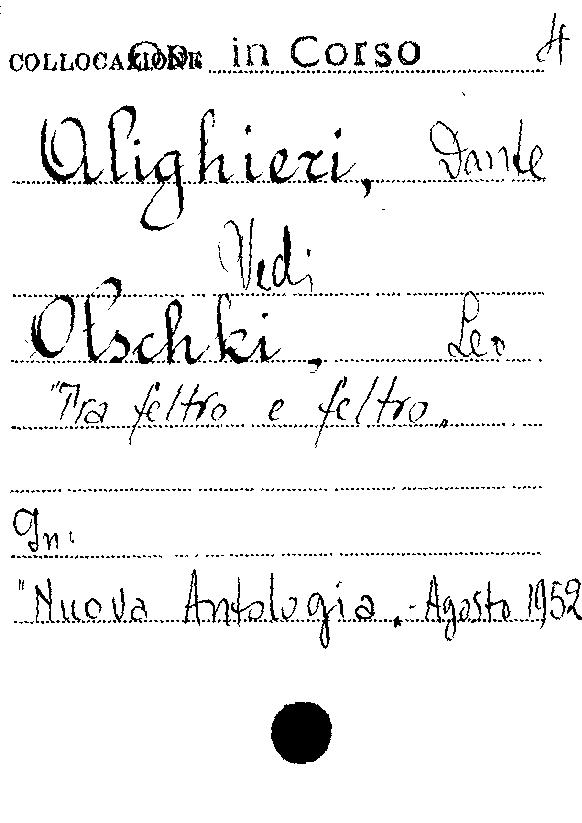 COLLOCAZIONE OP. in Corso
Alighieri, Dante
Vedi
Olschki, Leo
"Tra feltro e feltro„
In:
"Nuova Antologia„ - Agosto 1952